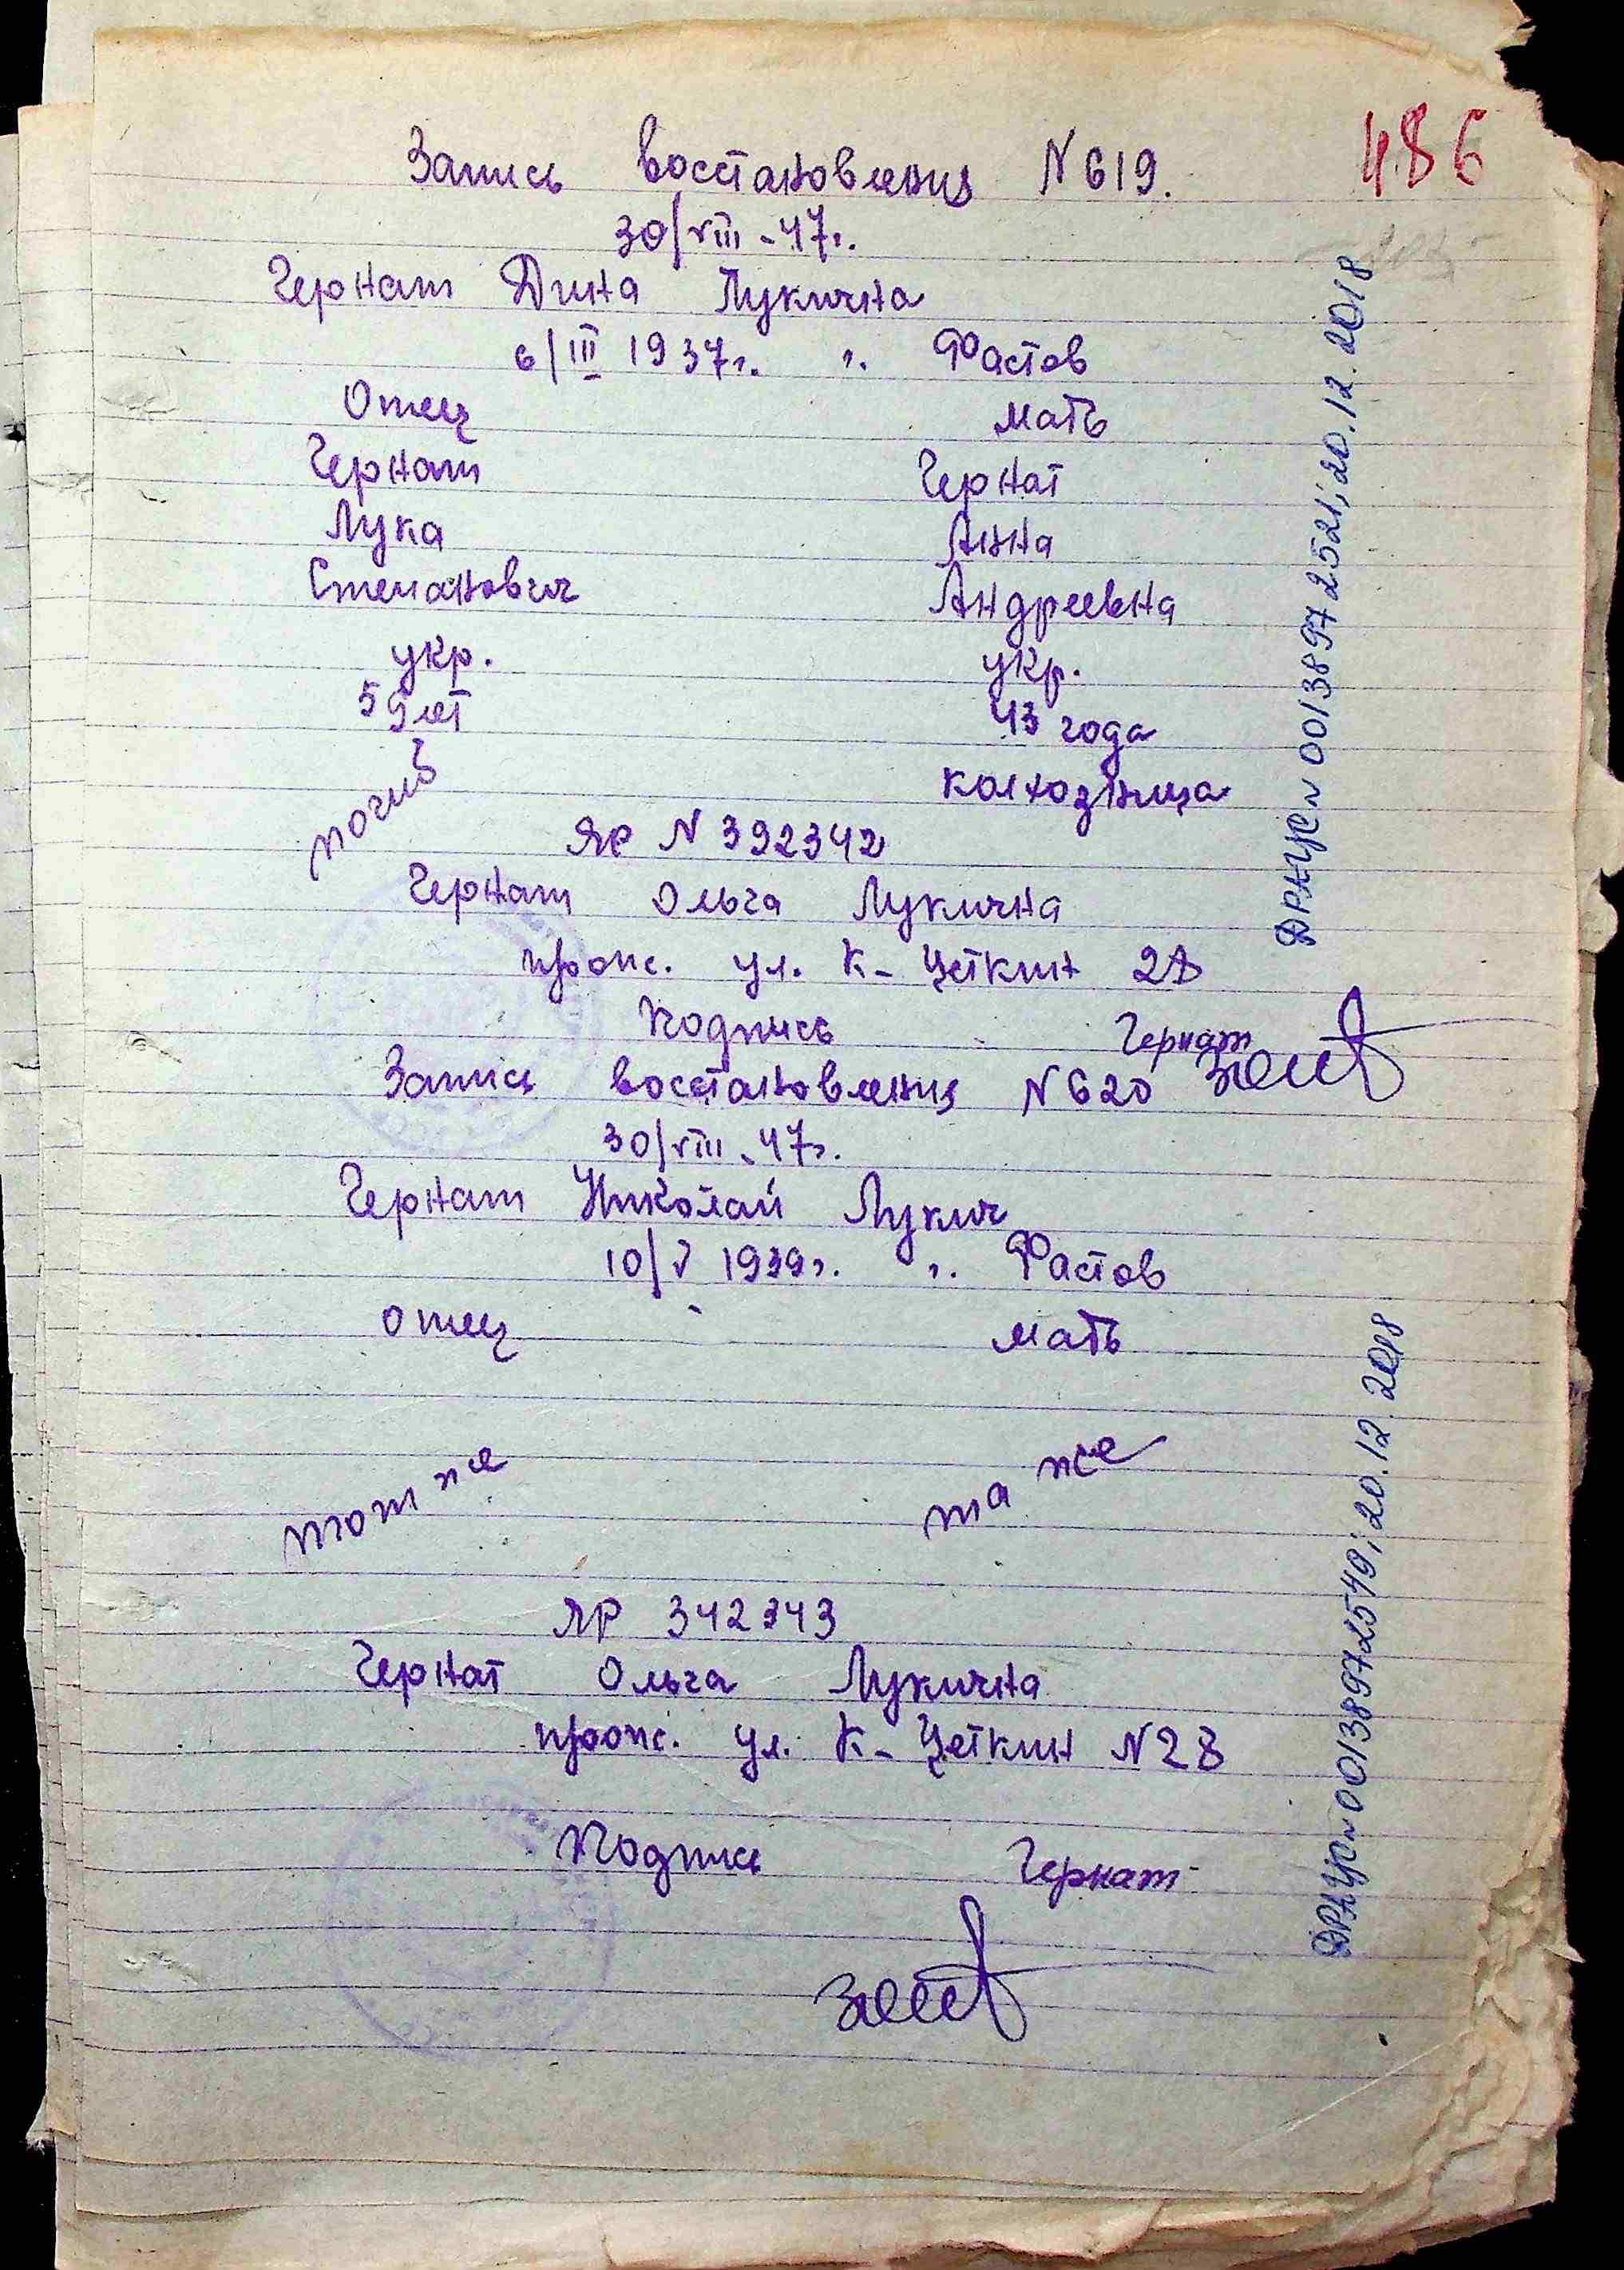 486
Запись восстановления N 619.
30/VIII-47г.
Чернат Дина Лукична
6/III 1937г. г. Фастов
Отец мать
Чернат Чернат
Лука Анна
Степанович Андреевна
укр. укр.
59 лет 43 года
погиб колхозница
ЯР N 392342
Чернат Ольга Лукична
ул. К-Цеткин 28
Подпись Чернат
Запись восстановления N 620
30/VIII-47г.
Чернат Николай Лукич
10/V 1939г. г. Фастов
отец мать
тот же та же
ЯР 342343
Чернат Ольга Лукична
ул. К-Цеткин N 28
Подпись Чернат
ДРАЦС N 00138972521; 20.12.2018
N 00138972549; 20.12.2018